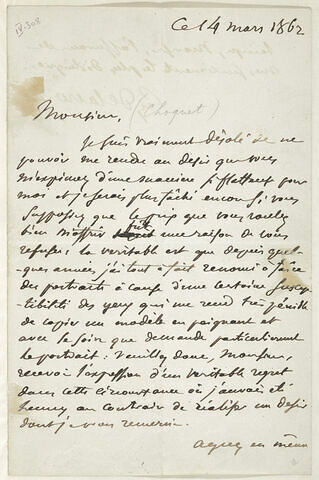 IV. 308
Ce 14 mars 1862
Monsieur, (Choquet)
Je suis vraiment désolé de ne
pouvoir me rendre au désir que vous
m'exprimez d'une manière si flatteuse pour
moi et je serais plus fâché encore si vous
supposiez que le prix que vous voulez
bien m'offrir fût une raison de vous
refuser. La véritable est que depuis quel-
ques années j'ai tout à fait renoncé à faire
des portraits à cause d'une certaine suscep-
tibilité des yeux qui me rend très pénible
de copier un modèle en peignant et
avec le soin que demande particulièrement
le portrait : Veuillez donc, Monsieur,
recevoir l'expression d'un véritable regret
dans cette circonstance où j'aurais été
heureux au contraire de réaliser un désir
dont je vous remercie.
Agréez en même